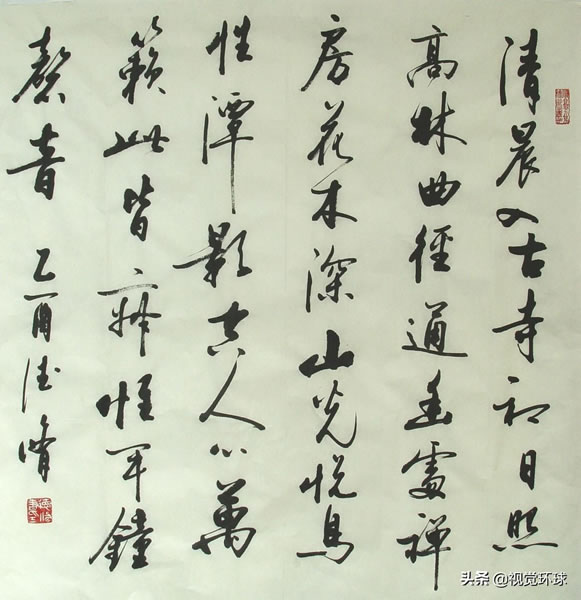 清晨入古寺初日照
高林曲徑通幽處禪
房花木深山光悦鳥
性潭影空人心萬
籟此皆寂惟闻鐘
磬音 乙酉德
头条 @视觉环球